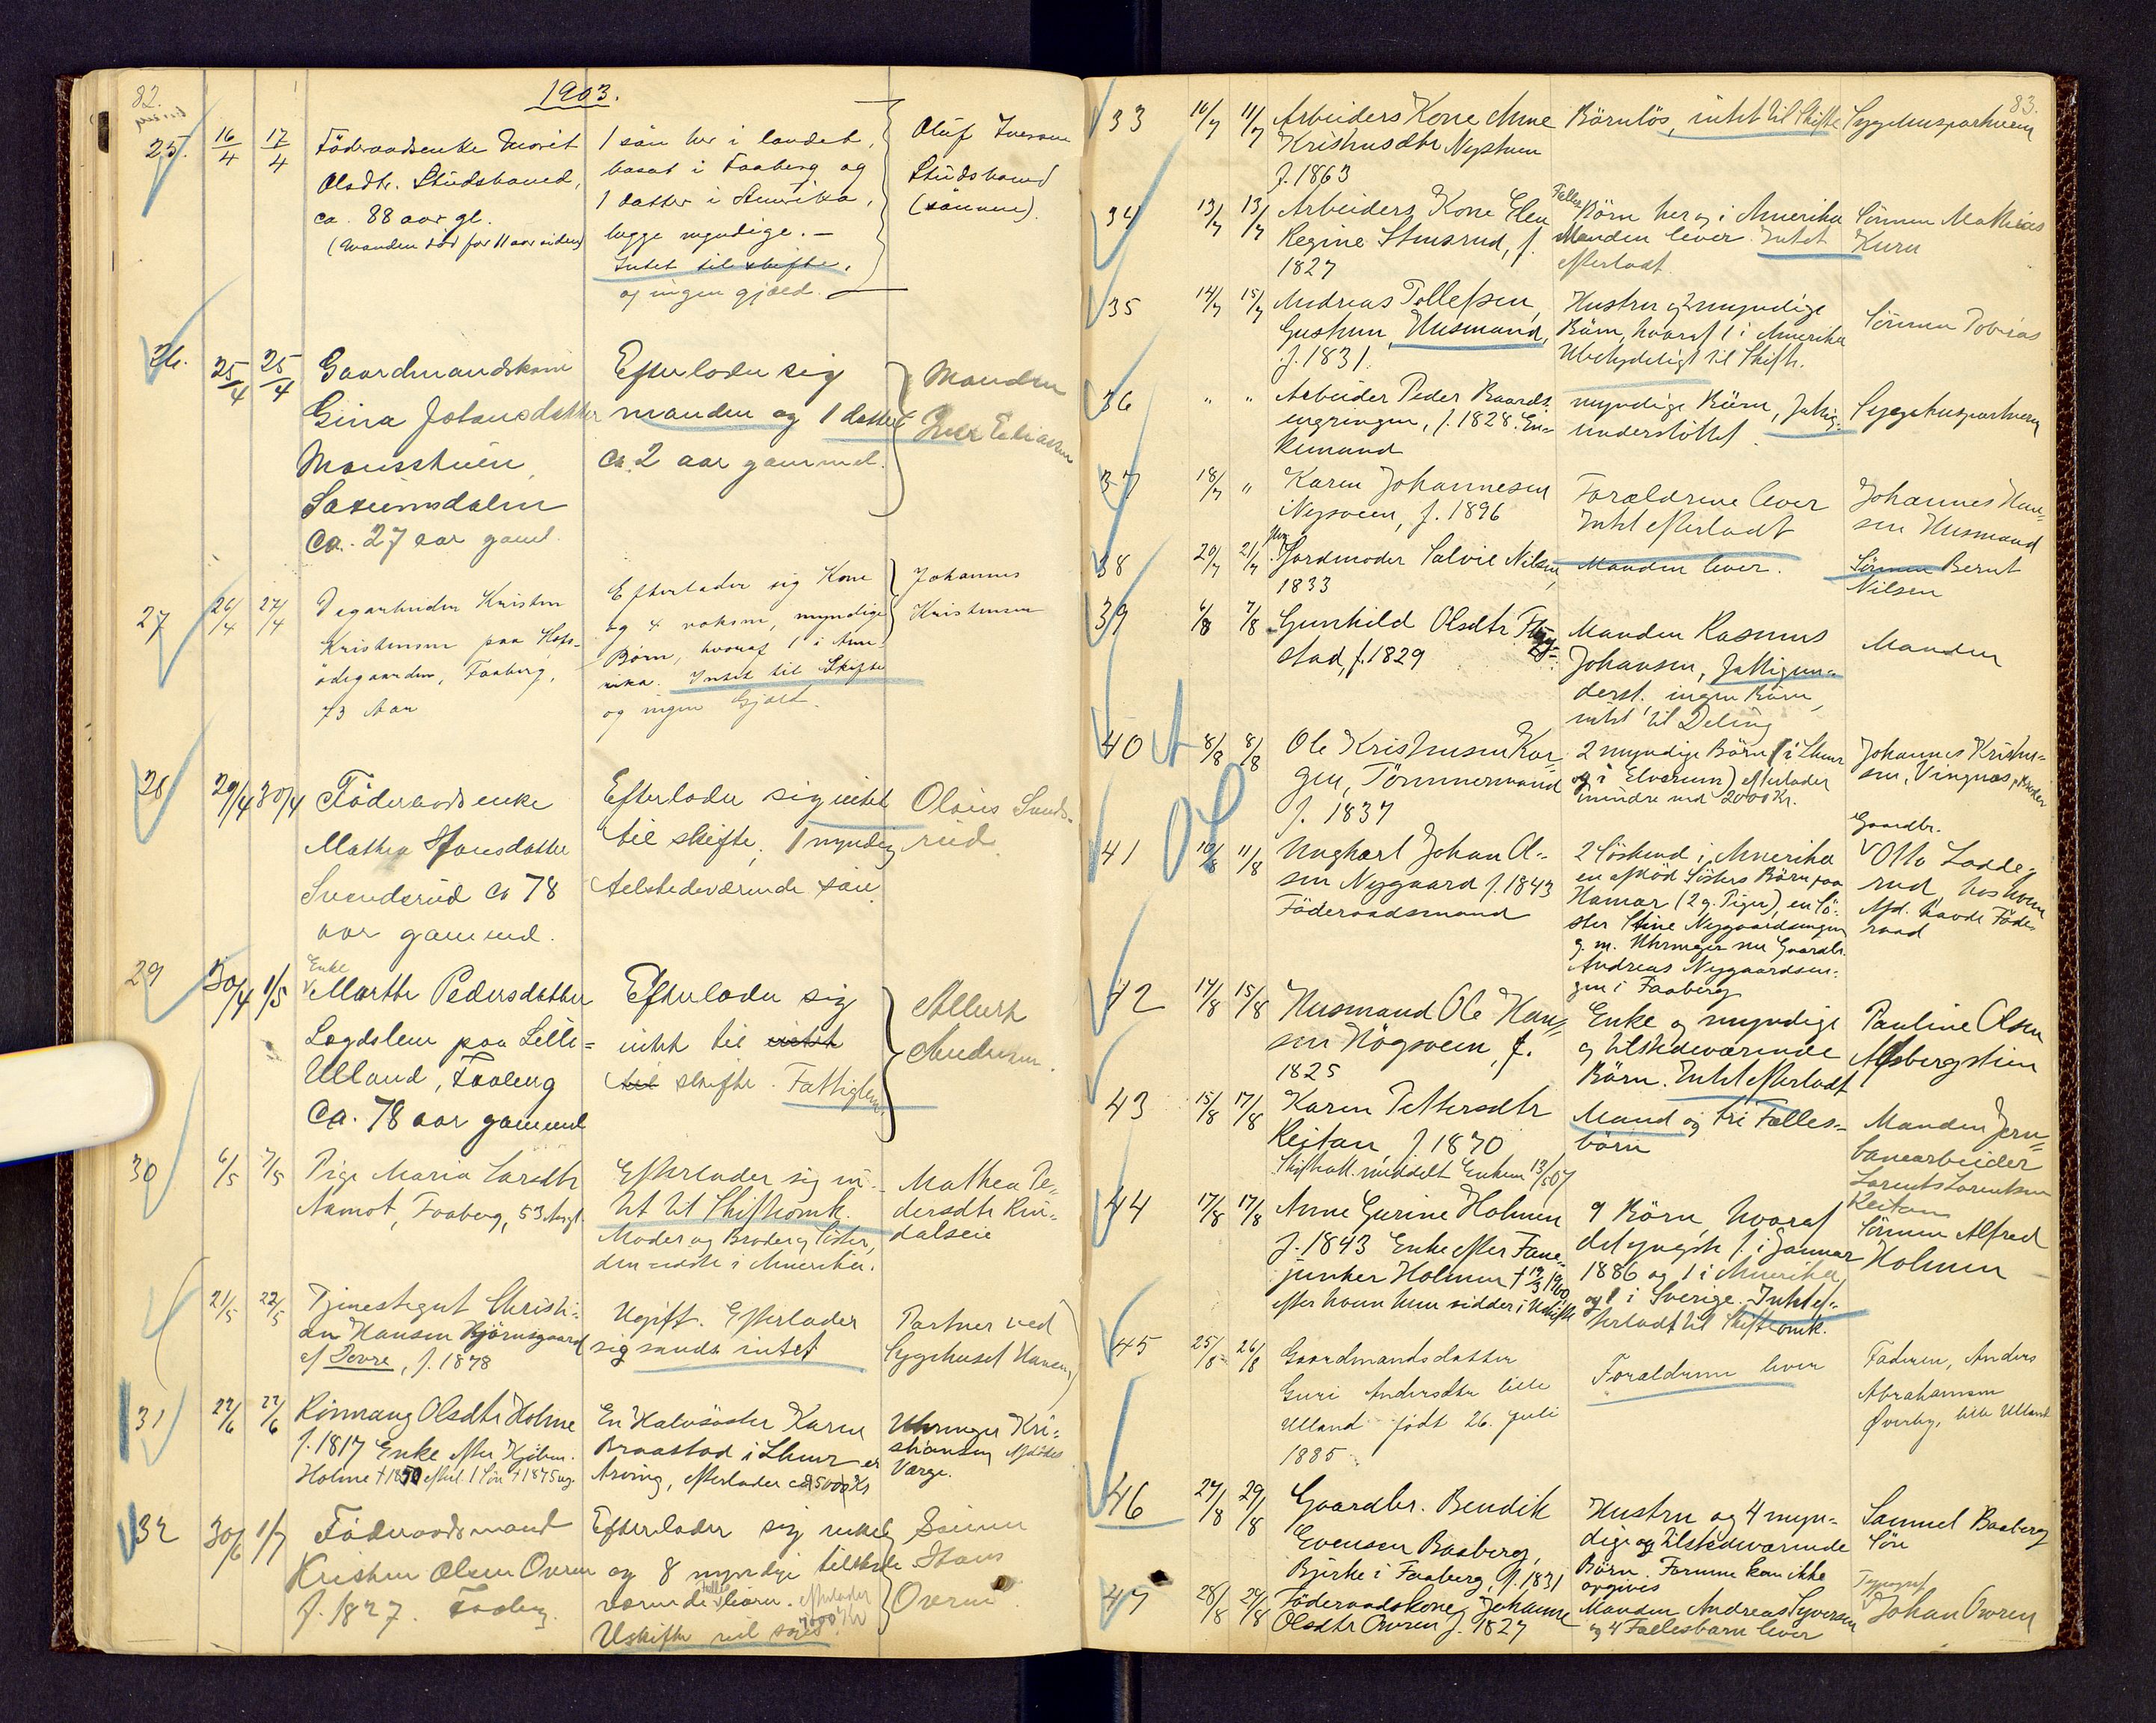 82.
1903.
25. 16/4 17/4 Föderaadsenke Marit
Olsdtr. Studshaued,
ca. 88 aar gl.
(Manden död for 11 aar siden)
1 sön her i landet,
bosat i Faaberg og
1 datter i Amerika,
begge myndige. —
Intet til skifte,
og ingen gjæld.
Oluf Iversen
Studshaued
(sönnen).
26. 25/4 25/4 Gaardmandskone
Gina Johansdatter
Monsstuen,
Saxumsdalen
Ca. 27 aar gaml.
Efterlader sig
manden og 1 datter
ca. 2 aar gammel.
Manden
Iver Eliasen
27 26/4 27/4 Dagarbeider Kristen
Kristensen paa Hafs-
ödegaarden, Faaberg,
73 Aar
Efterlader sig Kone
og 4 voksne, myndige
Börn, hvoraf 1 i Ame-
rika. Intet til Skifte
og ingen Gjæld.
Johannes
Kristensen
28 29/4 30/4 Föderaadsenke
Mathea Hansdatter
Svendsrud ca 78
aar gammel.
Efterlader sig intet
til skifte, 1 myndig
tilstedeværende søn
Olaus Sunds-
rud.
29 30/4 1/5 Enke
Marthe Pedersdatter
Logdslem paa Lille=
Ulland, Faaberg
Ca. 78 aar gammel
Efterlader sig
intet til intet
til skifte. Fattiglem
Albert
Andersen.
30 6/5 7/5 Pige Maria Larsdtr
Aamot, Faaberg, 53 Aar gl.
Efterlader sig in-
tet til Skiftebeh.
Moder og Broder og Söster,
den sidste i Amerika.
Mathea Pe-
dersdtr Rin-
dalseie
21/5 22/5 Tjenestegut Christi-
an Hansen Bjørnsgaard
af Dovre, f. 1878
Ugift. Efterlader
sig sandt intet
Portner ved
Sygehuset Hansen
31 22/6 22/6 Rönnaug Olsdtr Holme
f. 1817 Enke efter Kjöbm.
Holme † 1850 efterl. 1 Sön † 1875 ug.
En Halvsöster Karen
Braastad i Lhmr er
Arving, efterlader ca 2500 Kr
Uhrmager Kri-
stiansen Afdödes
Værge.
32 30/6 1/7 Föderaadsmand
Kristen Olsen Overen
f. 1827. Faaberg.
Efterlader sig enke
og 8 myndige tilstede
værende fælles börn. efterlader
7000 Kr
Uskifte vil søges.
Sönnen
Hans
Overen
83.
33 10/7 11/7 Arbeiders Kone Anne
Kristensdtr Nystuen
f. 1863
Börnlös, intet til Skifte
Sygehusportneren
34 13/7 13/7 Arbeiders Kone Elen
Regine Stensrud, f.
1827
Fælles
Börn her og i Amerika
Manden lever. Intet
efterladt.
Sönnen Mathias
Kurn
35 14/7 15/7 Andreas Tollefsen
Gustuen, Husmand,
f. 1831.
Hustru og 2 myndige
Börn, hvoraf 1 i Amerika
Ubetydeligt til Skifte.
Sönnen Tobias
36 " " Arbeider Peder Baards-
engringen, f. 1828. En-
kemand
myndige Börn, fattig-
understöttet.
Sygehusportneren
37 18/7 " Karen Johannesen
Nysveen, f. 1896
Forældrene lever
Intet efterladt
Johannes Han-
sen Husmand
38 20/7 21/7 Jordmoder Salvie Nilsen,
1833
Manden lever.
Sönnen Bernt
Nilsen
39 6/8 7/8 Gunhild Olsdtr Flug-
stad, f. 1829
Manden Rasmus
Johansen, fattigun-
derst., ingen Börn,
intet til Deling
Manden
40 8/8 8/8 Ole Kristensen Kor-
gen, Tömmermand
f. 1837
2 myndige Börn (i Lhmr
og i Elverum) efterlader
mindre end 2000 Kr.
Johannes Kristen-
sen, Vingnæs, Broder
41 10/8 11/8 Ungkarl Johan Ol-
sen Nygaard f. 1843
Föderaadsmand
2 Söskend i Amerika
en afdöd Sösters Börn paa
Hamar (2 g. Piger), en Sö-
ster Stine Nygaardsengen
g. m. Uhrmager nu Gaardbr.
Andreas Nygaardsen-
gen i Faaberg
Gaardbr.
Otto Ladde-
rud, hos hvem
Afd. havde Föde-
raad
42 14/8 15/8 Husmand Ole Han-
sen Högsveen, f.
1825
Enke og myndige
og tilstedeværende
Börn. Intet efterladt
Pauline Olsen
Alsbergstien
43 15/8 17/8 Karen Pettersdtr
Reitan, f 1870
Skifteatt. meddelt Enkem 13/5 07
Mand og tri Fælles-
börn
Manden Jern-
banearbeider
Lorents Lorentsen
Reitan
44 17/8 17/8 Anne Gurine Holmen
f. 1843 Enke efter Fane-
junker Holmen † 19/3 1900,
efter hvem hun sidder i Uskifte
9 Börn, hvoraf
det yngste f. i Januar
1886 og 1 i Amerika
og 1 i Sverige. Intet ef-
terladt til Skiftebeh.
Sönnen Alfred
Holmen
45 25/8 26/8 Gaardmandsdatter
Guri Andersdtr lille
Ulland født 26. juli
1885
Forældrene lever
Faderen, Anders
Abrahamsen
Øverby, lille Ulland
46 27/8 29/8 Gaardbr. Bendik
Evensen Baaberg,
Björke i Faaberg, f. 1831
Hustru og 4 myn-
dige og tilstedeværende
Börn. Formue kan ikke
opgives
Samuel Baaberg
Sön
47 28/8 29/8 Föderaadskone Johanne
Olsdtr Owren f. 1827
Manden Andreas Syversen
og 4 Fællesbarn lever
Typograf
Johan Owren